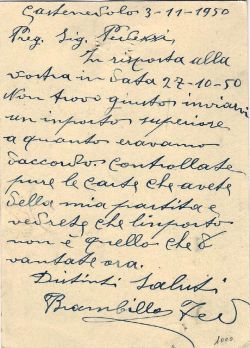 Castenedolo 3-11-1950
Preg. Sig.
In risposta alla
vostra in data 27-10-50
Non trovo giusto inviarvi
un inporto superiore
a quanto eravamo
daccordo controllate
pure le carte che avete
della mia partita e
vedrete che linporto
non è quello che
vantate ora.
Distinti Saluti
Brambilla
1000